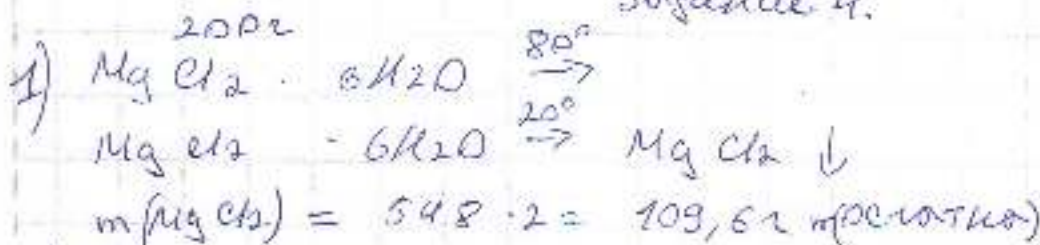 Задание 4.
200г
1) MgCl2 · 6H2O 80° →
MgCl2 · 6H2O 20° → MgCl2 ↓
m(MgCl2) = 54,8 · 2 = 109,6г m(остатка)